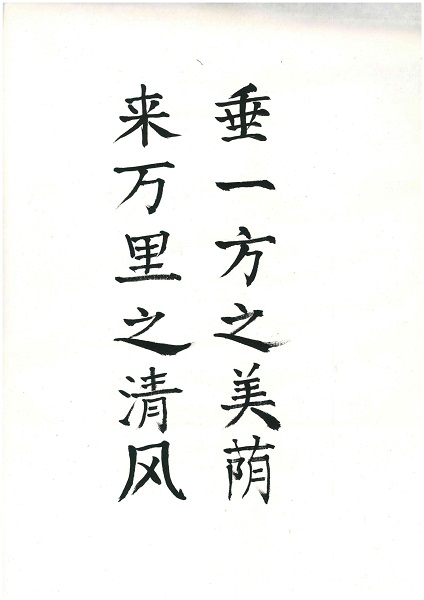 垂一方之美荫
来万里之清风